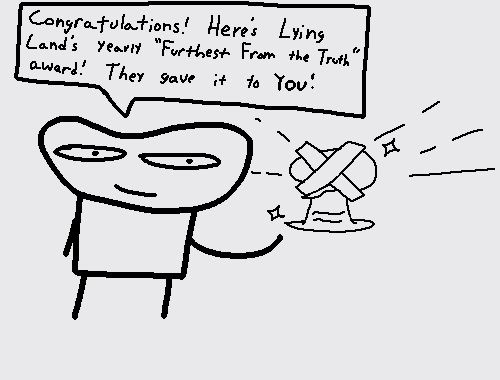 Congratulations! Here's Lying
Land's yearly "Furthest From the Truth"
award! They gave it to You!